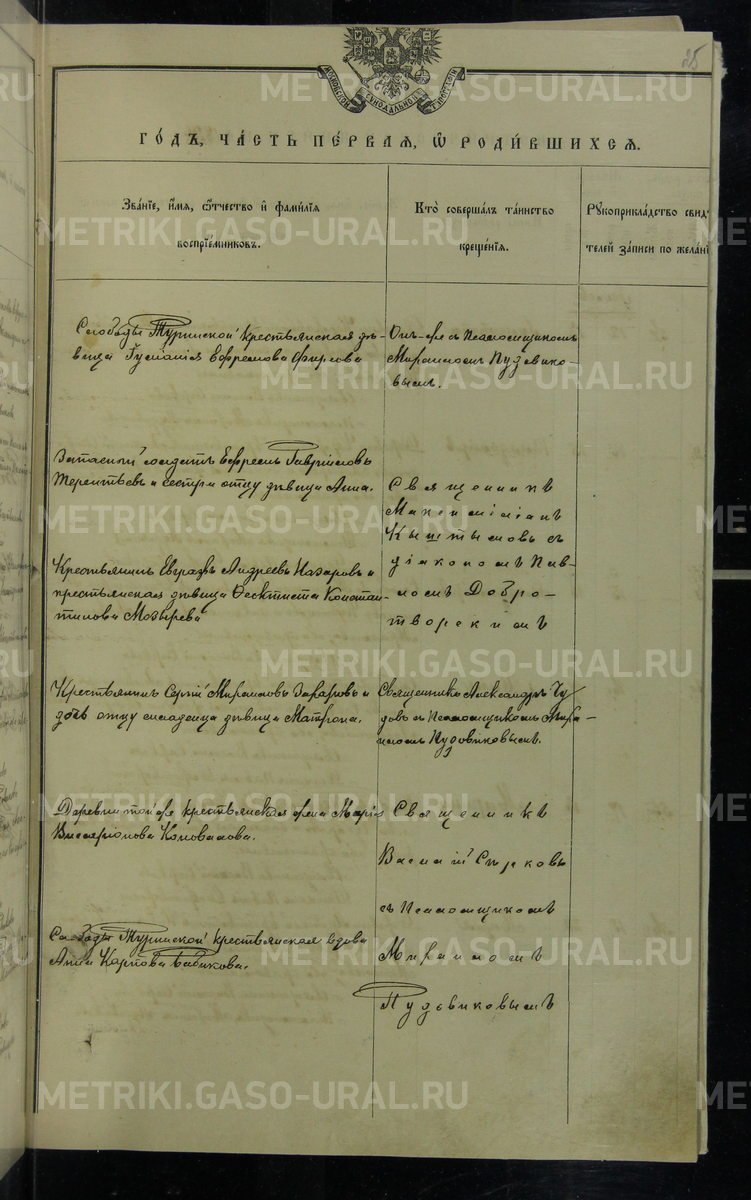 25
МОСКОВСКОЙ СѴНОДАЛЬНОЙ ТИПОГРАФІИ
ГО́ДЪ, ЧА́СТЬ ПЕ́РВАЯ, Ѡ҆ РОДИ́ВШИХСЯ.
Зва́нїе, и҆́мя, ѻ҆́тчество и҆ фами́лїя
воспрїе́мниковъ.
Кто̀ соверша́лъ та́инство
креще́нїя.
Рꙋкоприкла́дство свид
телей за́писи по жела́нї
Слободы Туринской крестьянская дѣ-
вица Ефремова Фирсова
Онъ-же съ Псаломщикомъ
Мирономъ Пудовико-
вымъ.
Запасный солдатъ Ефремъ Гавриловъ
Терентьевъ и сестра отцу дѣвица Анна.
Священникъ
Максимиліанъ
Кыштымовъ съ
діакономъ Пав-
ломъ Добро-
творскимъ
Крестьянинъ Андреевъ Назаровъ и
крестьянская дѣвица Феоктиста Констан-
тинова Мозырева
Крестьянинъ Сергій Мироновъ Захаровъ и
дочь отцу младенца дѣвица Матрона.
Священникъ Александръ Чу
довъ съ Псаломщикомъ Миро-
номъ Пудовиковымъ.
Деревни той-же крестьянская жена Марія
Виссаріонова Коновалова.
Священникъ
Василій Сѣрковъ
съ Псаломщикомъ
Мирономъ
Пудовиковымъ
Слободы Туринской крестьянская вдова
Анна Карпова Бабикова.
METRIKI.GASO-URAL.RU